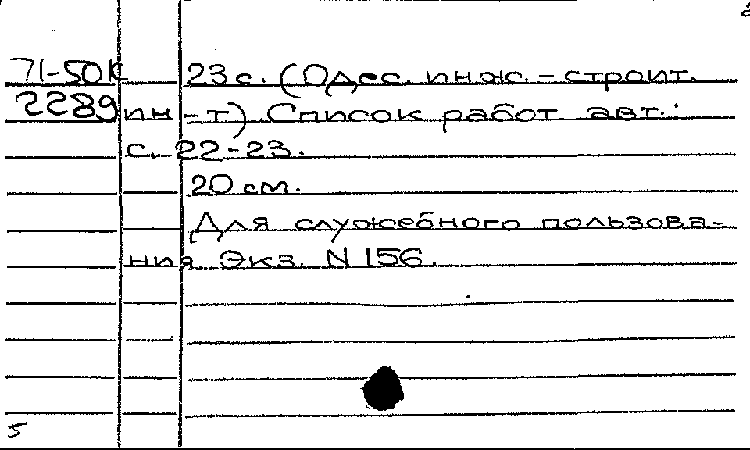 71-50К 23 с. (Одес. инж.-строит.
2289 ин-т). Список работ авт.:
с. 22-23.
20 см.
Для служебного пользова-
ния Экз. N 156.
5